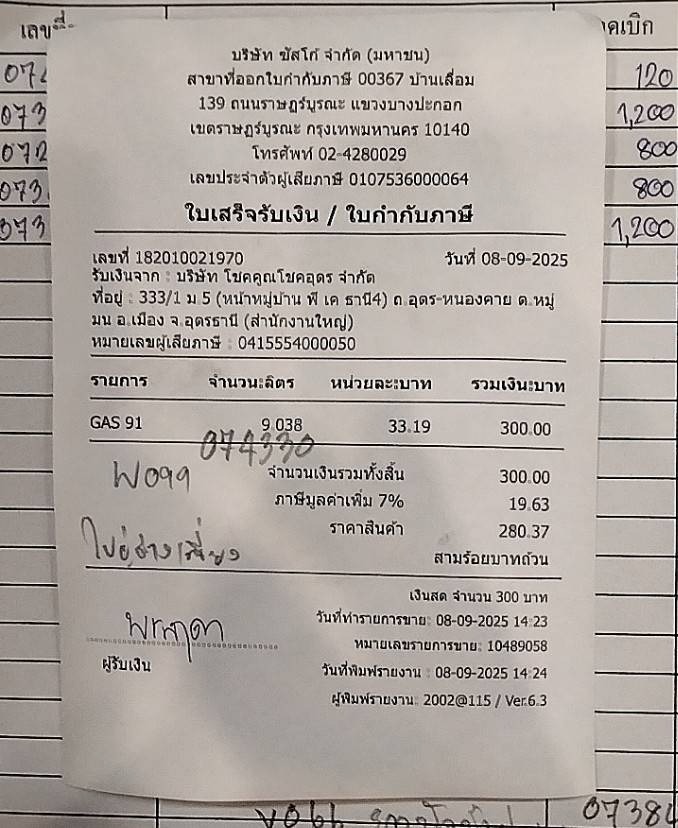 เลขที่
ดเบิก
120
073
1,200
072
800
073
800
073
1,200
บริษัท ซัสโก้ จำกัด (มหาชน)
สาขาที่ออกใบกำกับภาษี 00367 บ้านเลื่อม
139 ถนนราษฎร์บูรณะ แขวงบางปะกอก
เขตราษฎร์บูรณะ กรุงเทพมหานคร 10140
โทรศัพท์ 02-4280029
เลขประจำตัวผู้เสียภาษี 0107536000064
ใบเสร็จรับเงิน / ใบกำกับภาษี
เลขที่ 182010021970 วันที่ 08-09-2025
รับเงินจาก : บริษัท โชคคูณโชคอุดร จำกัด
ที่อยู่ : 333/1 ม.5 (หน้าหมู่บ้าน พี เค ธานี4) ถ.อุดร-หนองคาย ต.หมู
มน อ.เมือง จ.อุดรธานี (สำนักงานใหญ่)
หมายเลขผู้เสียภาษี : 0415554000050
รายการ จำนวน:ลิตร หน่วยละ:บาท รวมเงิน:บาท
GAS 91 9.038 33.19 300.00
074330
จำนวนเงินรวมทั้งสิ้น 300.00
ภาษีมูลค่าเพิ่ม 7% 19.63
ราคาสินค้า 280.37
สามร้อยบาทถ้วน
เงินสด จำนวน 300 บาท
วันที่ทำรายการขาย: 08-09-2025 14:23
หมายเลขรายการขาย: 10489058
ผู้รับเงิน
วันที่พิมพ์รายงาน : 08-09-2025 14:24
ผู้พิมพ์รายงาน: 2002@115 / Ver.6.3
0738